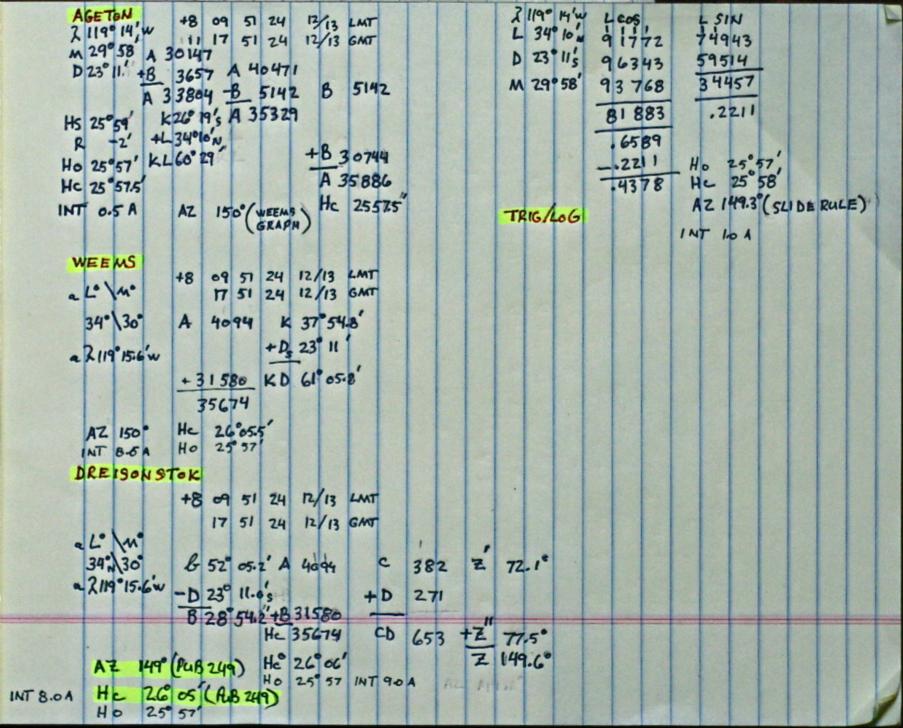 AGETON
λ 119° 14'W +8 09 51 24 12/13 LMT
M 29° 58 17 51 24 12/13 GMT
A 30147
D 23° 11' +B 3657 A 40471
A 33804 -B 5142 B 5142
HS 25° 59' K 26° 19's A 35329
R -2' +L 34° 10'N
Ho 25° 57' KL 60° 29' +B 30744
Hc 25° 57.5' A 35886
INT 0.5 A AZ 150° (WEEMS GRAPH) Hc 25 57.5'
λ 119° 14'W L cos L SIN
L 34° 10'N 9 1772 74943
D 23° 11's 9 6343 59514
M 29° 58' 9 3768 34457
81 883 .2211
.6589
-.2211 Ho 25° 57'
.4378 Hc 25° 58'
TRIG/LOG AZ 149.3° (SLIDE RULE)
INT 1.0 A
WEEMS
+8 09 51 24 12/13 LMT
a L° \ M° 17 51 24 12/13 GMT
34° \ 30° A 4094 K 37° 54.8'
+Ds 23° 11'
a λ 119° 15.6'W
+31580 KD 61° 05.8'
35674
AZ 150° Hc 26° 05.5'
INT 8.5 A Ho 25° 57'
DREISONSTOK
+8 09 51 24 12/13 LMT
17 51 24 12/13 GMT
a L° \ M°
34°N \ 30° b 52° 05.2' A 4094 C 382 Z' 72.1°
a λ 119° 15.6'W -D 23° 11.0's +D 271
B 28° 54.2' +B 31580
Hc 35674 CD 653 +Z" 77.5°
Z 149.6°
AZ 149° (PUB 249) Hc 26° 06'
Ho 25° 57 INT 9.0 A
INT 8.0 A Hc 26° 05' (PUB 249)
Ho 25° 57'